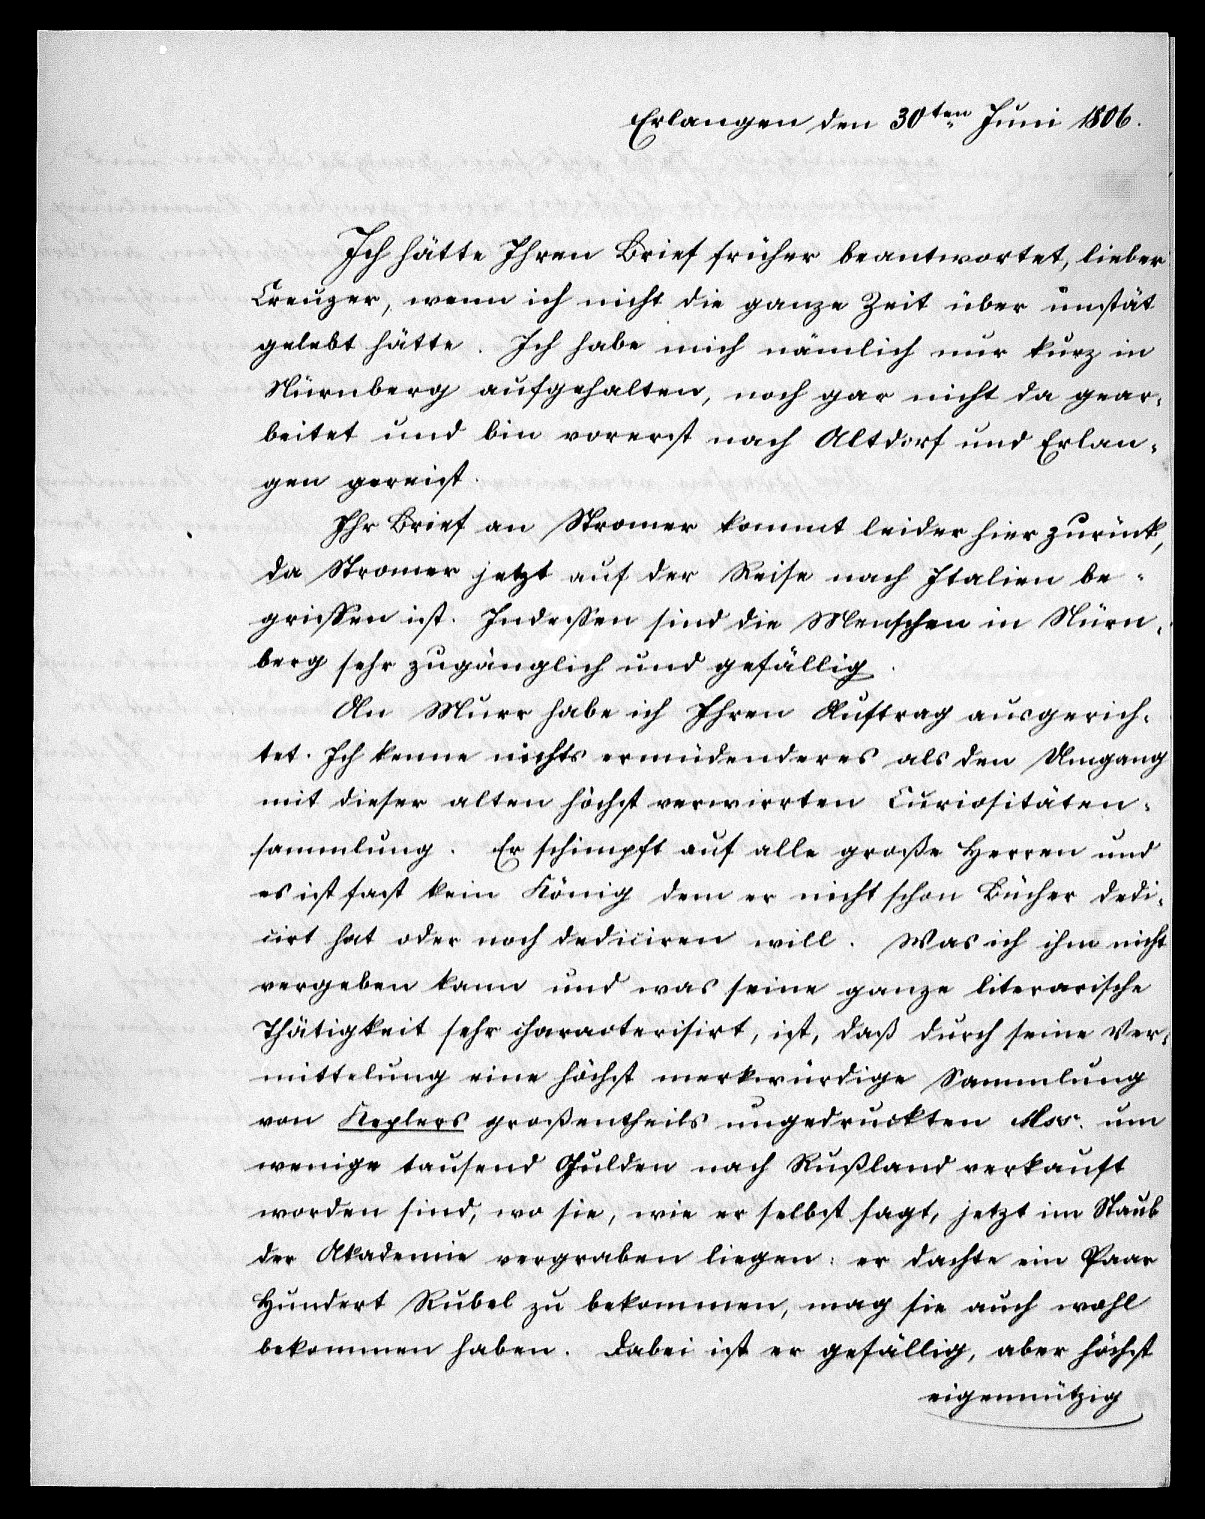 Erlangen den 30ten Juni 1806.
Ich hätte Ihren Brief früher beantwortet, lieber
Creuzer, wenn ich nicht die ganze Zeit über unstät
gelebt hätte. Ich habe mich nämlich nur kurz in
Nürnberg aufgehalten, noch gar nicht da gear-
beitet und bin vorerst nach Altdorf und Erlan-
gen gereist.
Ihr Brief an Stromer kommt leider hier zurück,
da Stromer jetzt auf der Reise nach Italien be-
griffen ist. Indessen sind die Menschen in Nürn-
berg sehr zugänglich und gefällig.
An Murr habe ich Ihren Auftrag ausgerich-
tet. Ich kenne nichts ermüdenderes als den Umgang
mit dieser alten höchst verwirrten Curiositäten-
sammlung. Er schimpft auf alle große Herren und
es ist fast kein König dem er nicht schon Bücher dedi-
cirt hat oder noch dediciren will. Was ich ihm nicht
vergeben kann und was seine ganze literarische
Thätigkeit sehr characterisirt, ist, daß durch seine Ver-
mittelung eine höchst merkwürdige Sammlung
von Keplers großentheils ungedruckten Mss. um
wenige tausend Gulden nach Rußland verkauft
worden sind, wo sie, wie er selbst sagt, jetzt im Staub
der Akademie vergraben liegen: er dachte ein Paar
Hundert Rubel zu bekommen, mag sie auch wohl
bekommen haben. Dabei ist er gefällig, aber höchst
eigennützig